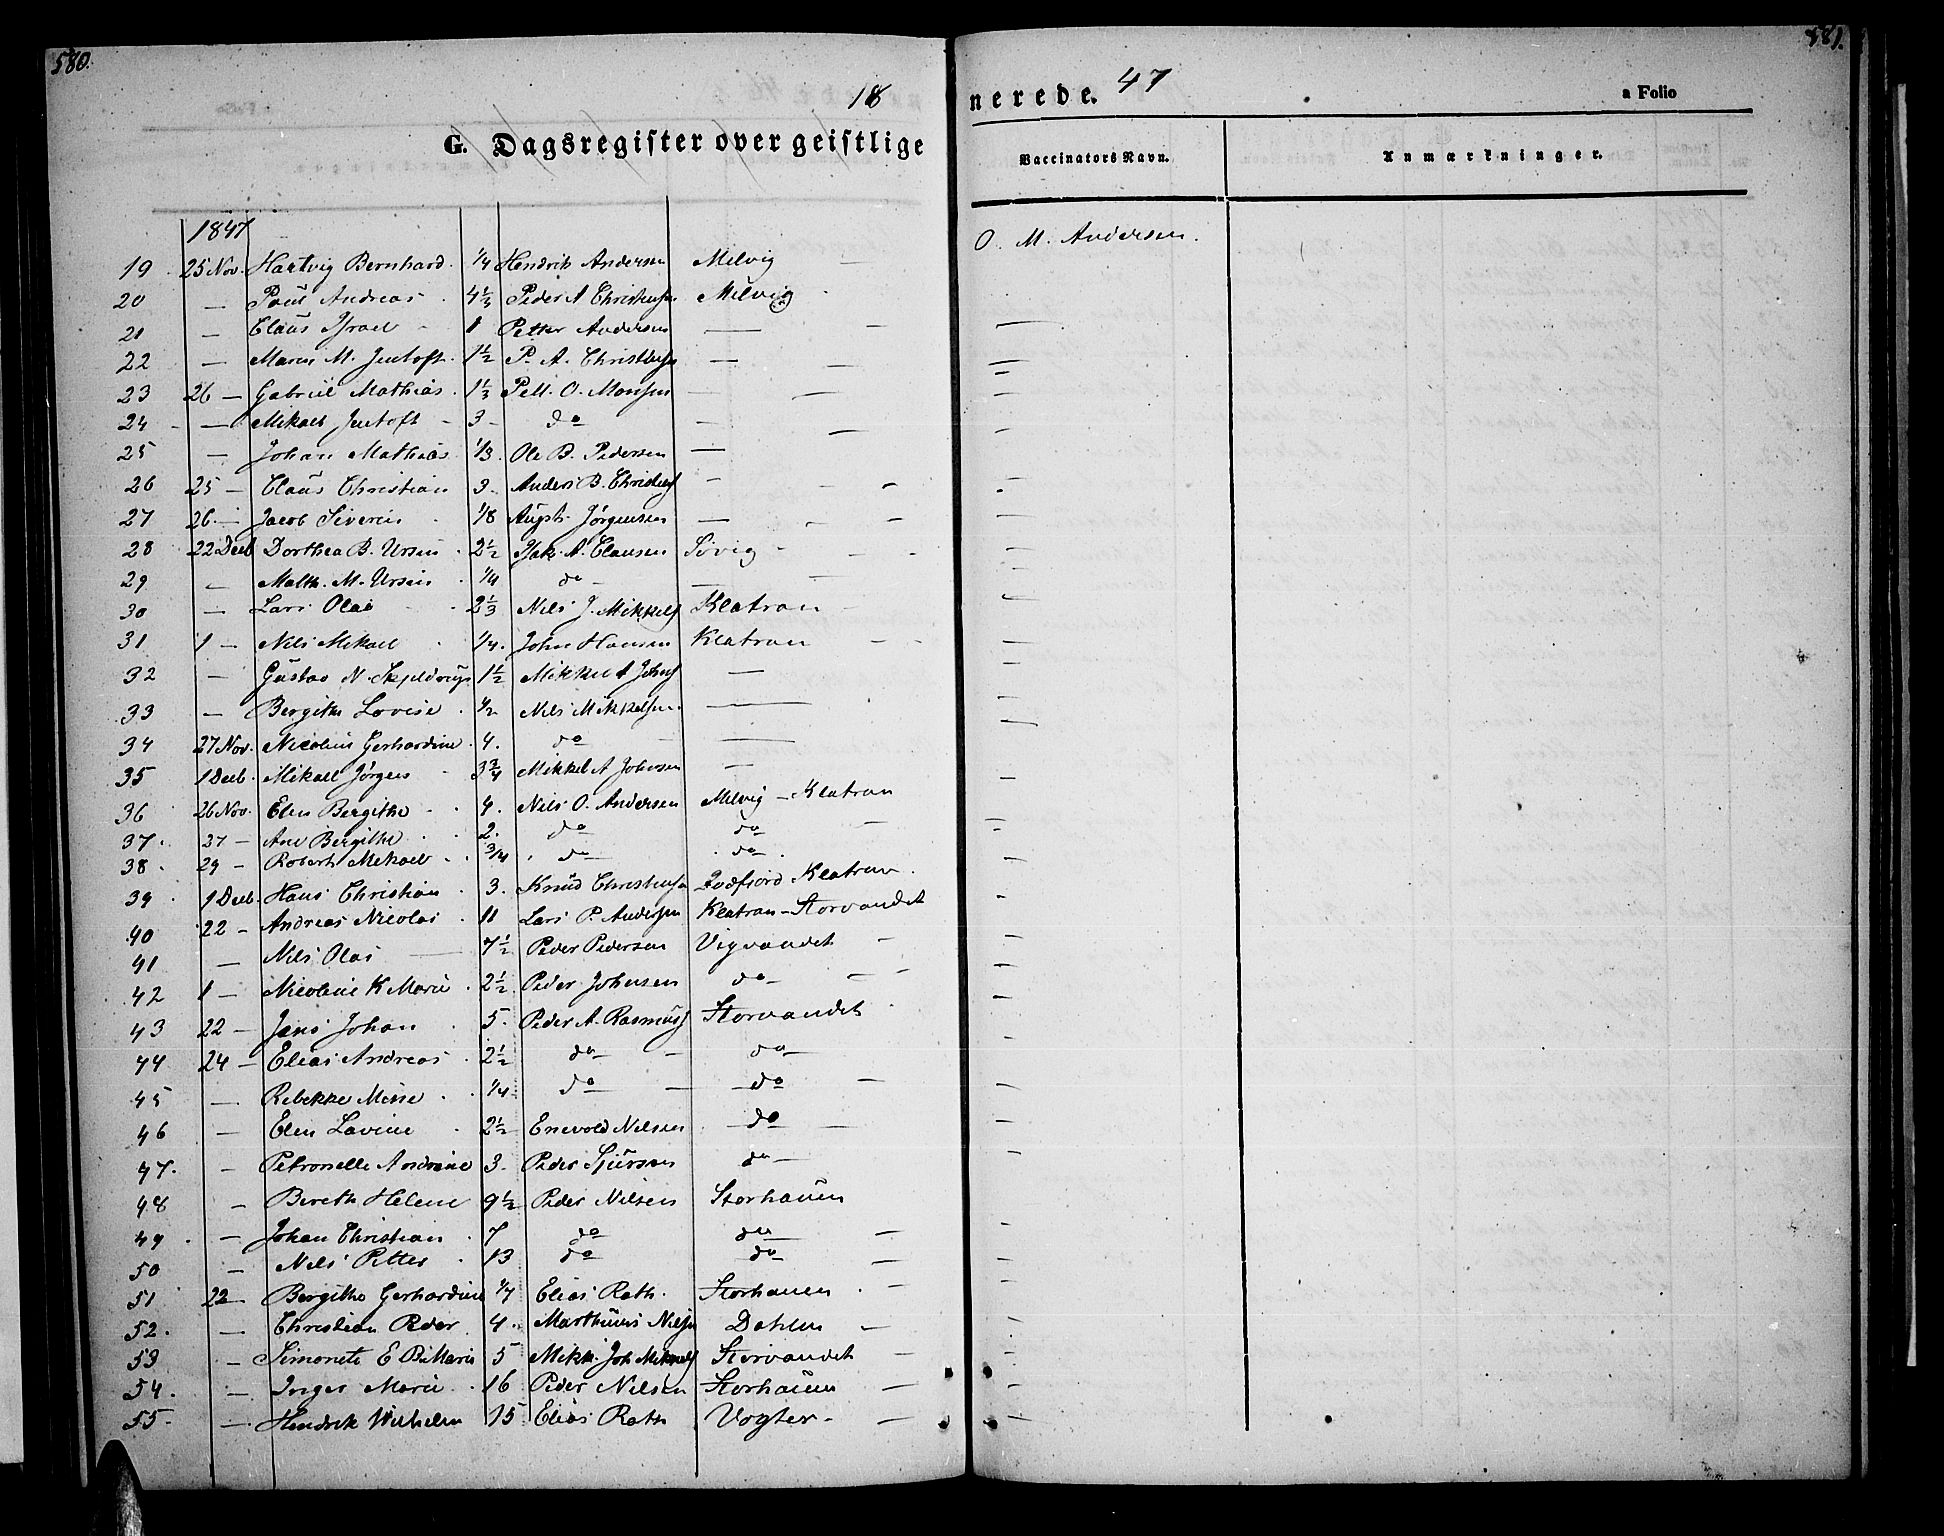 580.
581.
18
nerede. 47
a Folio
G. Dagsregister over geistlige
Vaccinators Navn.
Anmærkninger.
1847
O. M. Andersen.
19 25 Nov. Hartvig Bernhard. 1/4 Hendrik Andersen Melvig —
20 — Paul Andreas 4 1/3 Peder A Christensen Melvig
21 — Claus Israel 1 Petter Andersen —
22 — Maren M. Jentoft. 1 1/2 P. A. Christensen —
23 26 — Gabriel Mathias. 1 1/3 Pell. O. Monsen —
24 — Mikael Jentoft 3 do —
25 — Johan Mathias 1/3 Ole B. Pedersen —
26 25 — Claus Christian 3. Anders B. Christens —
27 26 — Jacob Siverin 1/8 Augst. Jørgensen —
28 22 Decb Dorthea B. Ursin 2 1/2 Isak A. Clausen Sovig
29 — Math. M. Ursin 1/4 do —
30 — Lars Olai 2 1/3 Nils J. Mikkels Klatran
31 1 — Nils Mikael 1/4. John Hansen Klatran
32 — Gustav N. Skjeldrup 1 1/2 Mikkel A Johns —
33 — Bergithe Lovise 1/2 Nils Mikkelsen. —
34 27 Nov. Nicoline Gerhardine 4. do —
35 1 Decb. Mikael Jørgen 3 3/4 Mikkel A Johnsen —
36 26 Nov. Elen Bergithe 4. Nils O. Andersen Melvig — Klatran
37. 27 — Ane Bergithe 2. do do
38. 29 — Robert Mikael 3/4 do do
39 1 Decb. Hans Christian 3. Knud Christensen Qvæfiord Klatran
40 22 — Andreas Nicolai 11 Lars P. Andersen Klatran — Storvandet
41 — Nils Olai 7 1/2 Peder Pedersen Vigvandet
42 1 — Nicoline K Marie 2 1/2 Peder Johnsen do
43 22 — Jens Johan 5. Peder A. Rasmuss Storvandet
44 24 — Elias Andreas 2 1/2 do do
45 — Rebekke 1/4 do do
46 — Elen Lavine 2 1/2 Enevold Nilsen do
47. — Petronelle Andrine 3. Peder Sjursen do
48 — Bereth Helene 9 1/2 Peder Nilsen Storhauen
49 — Johan Christian 7 do do
50 — Nils Petter 13 do do
51 22 — Bergithe Gerhardine 1/7 Elias Rath. Storhauen
52. — Christian Peder 4. Marthinus Nilsen Dahlen
53 — Simonete E B. Marie 5 Mikk. Joh Mikkels Storvandet
54. — Inger Marie 16 Peder Nilsen Storhauen
55 — Hendrik Wilhelm 15 Elias Rath Vogter